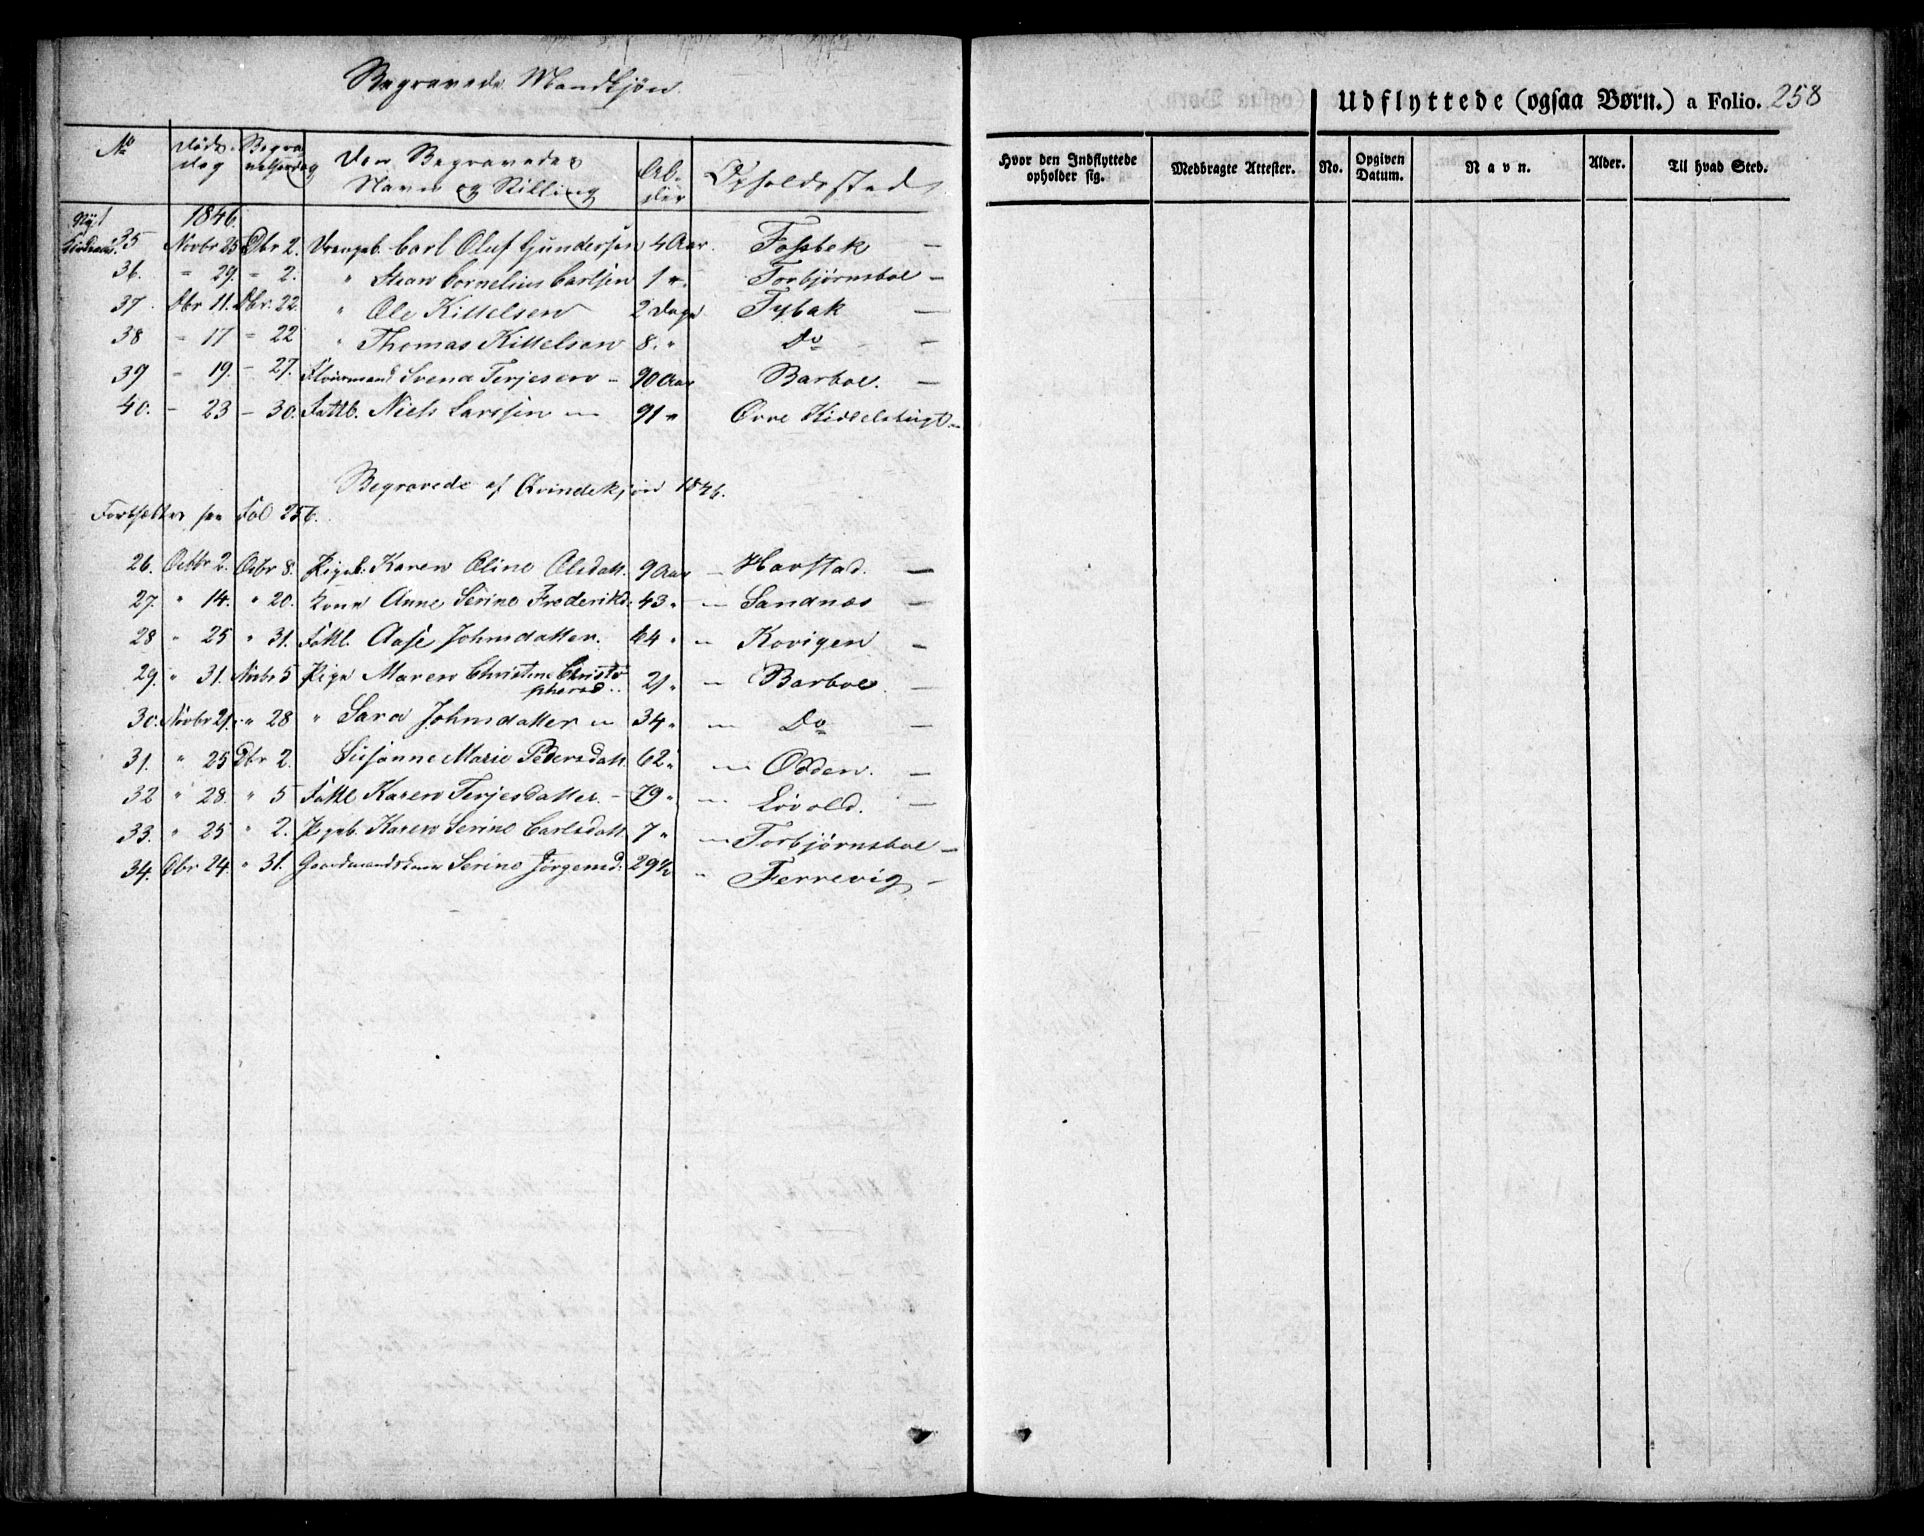 Begravede Mandkjön.
No | Döds-dag | Begravelsesdag | Den Begravedes Navn og Stilling | Alder | Opholdssted
1846.
35 Novbr 25 Dbr 2. Drengeb. Carl Oluf Gundersen 4 Aar. Fossbek —
36. " 29. " 2. " Cornelius Carlsen 1 ". Torbjørnsboe —
37. Dbr 11. Dbr. 22 " Ole Kittelsen 2 Dage Tybak —
38 - 17 - 22 " Thomas Kittelsen 8. " Do —
39 - 19. - 27. Svend Terjesen - 90 Aar Barboe. —
40. - 23 - 30. Fattb. Niels Larssen — 91 " Øvre —
Begravede af Qvindekjön 1846.
Fortsættes fra Fol 256.
26. Octbr 2. Octbr 8. Pigeb. Karen Oline Olsdatt. 9 Aar — Havstad. —
27. " 14. " 20. Kone Anne Serine Frederiksd. 43 " — Sandnæs —
28 " 25 " 31. Fattl. Aase Johnsdatter. 64 " — Kovigen —
29. " 31. Novbr 5 Pige Maren Christine Christopher­sd.. 21 " — Barboe. —
30. Novbr 21. " 28 " Sara Johnsdatter — 34 " — Do —
31. " 25 Dbr 2. Susanne Marie Pedersdatt. 62 " — Odden. —
32 " 28. " 5 Fattl Karen Terjesdatter. - 79 " — Løvold. —
33. " 25 " 2. Pigeb. Karen Serine Carlsdatt. 7 " — Torbjørnsboe —
34. Dbr 24. " 31. Gaardmandskone Serine Jørgensd. 29½ " Terrevig —
Udflyttede (ogsaa Børn.) a Folio. 258
Hvor den Indflyttede opholder sig. | Medbragte Attester. | No. | Opgiven Datum. | Navn. | Alder. | Til hvad Sted.